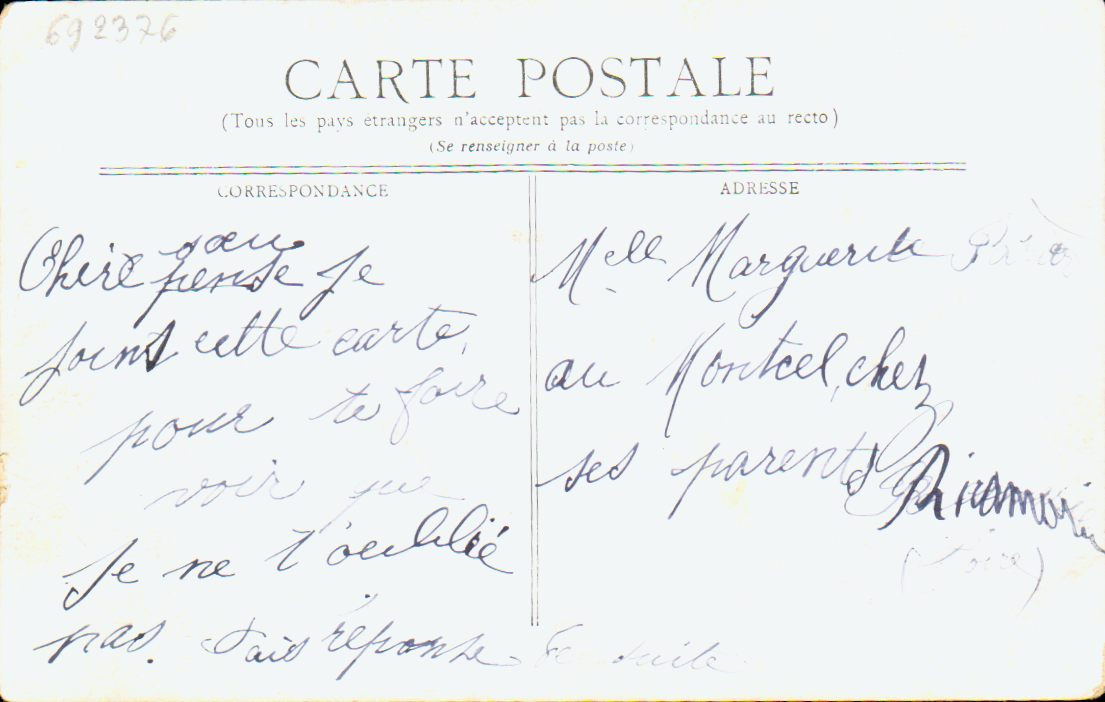 692376
CARTE POSTALE
(Tous les pays étrangers n'acceptent pas la correspondance au recto)
(Se renseigner à la poste)
CORRESPONDANCE
ADRESSE
sœur
Chère pense Je
joins cette carte,
pour te faire
voir que
Je ne t'oublié
pas. Fais réponse suite
Melle Marguerite
au Montcel, chez
ses parents
(Loire)